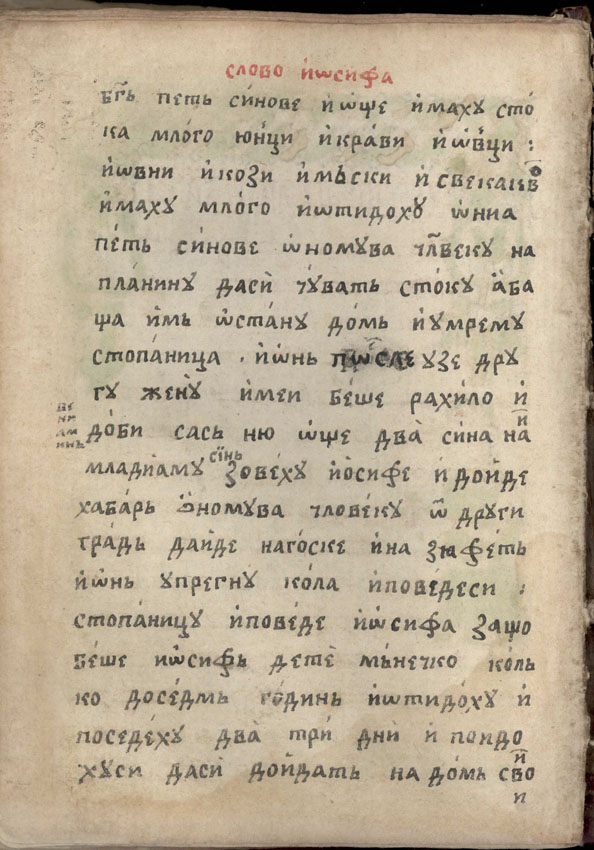 слово іѡсифа
бг҃ь петь си́нове и҆ѡще и҆маху сто́
ка мло́го ю́нци и҆кра́ви и҆ѡ́вци :
и҆ѡвни и҆кози и҆мьски и҆свекаквѡ
и҆маху мло́го и҆ѡтидоху ѡ҆ниа
пе́ть си́нове ѡ҆номува чл҃веку на
пла́нину даси чу́вать сто́ку а҆ба
ща и҆мь ѡ҆ста́ну до́мь и҆умрему
стопа́ница · и҆ѡ҆нь пѡсле узе дру
гу жену̀ и҆меи бе́ше рахило и҆
до́би сась ню ѡ҆ще два̀ сина наи
ве
ни
ам
инь
младиаму си́нь зове́ху ио́сифе и҆ дойде
хабарь ѡ҆номува человеку ѿ други
градь дайде нагоске и҆на зѧфеть
и҆ѡ҆нь упрегну кола и҆поведеси :
стопа́ницу и҆пове́де и҆ѡсифа защо
бе́ше и҆ѡсифь детѐ мьнечко ко́ль
ко досе́дмь го́динь и҆ѡтидо́ху и҆
поседе́ху два̀ три́ дни́ и҆ поидо
хуси даси до́йдать на до́мь свои
и